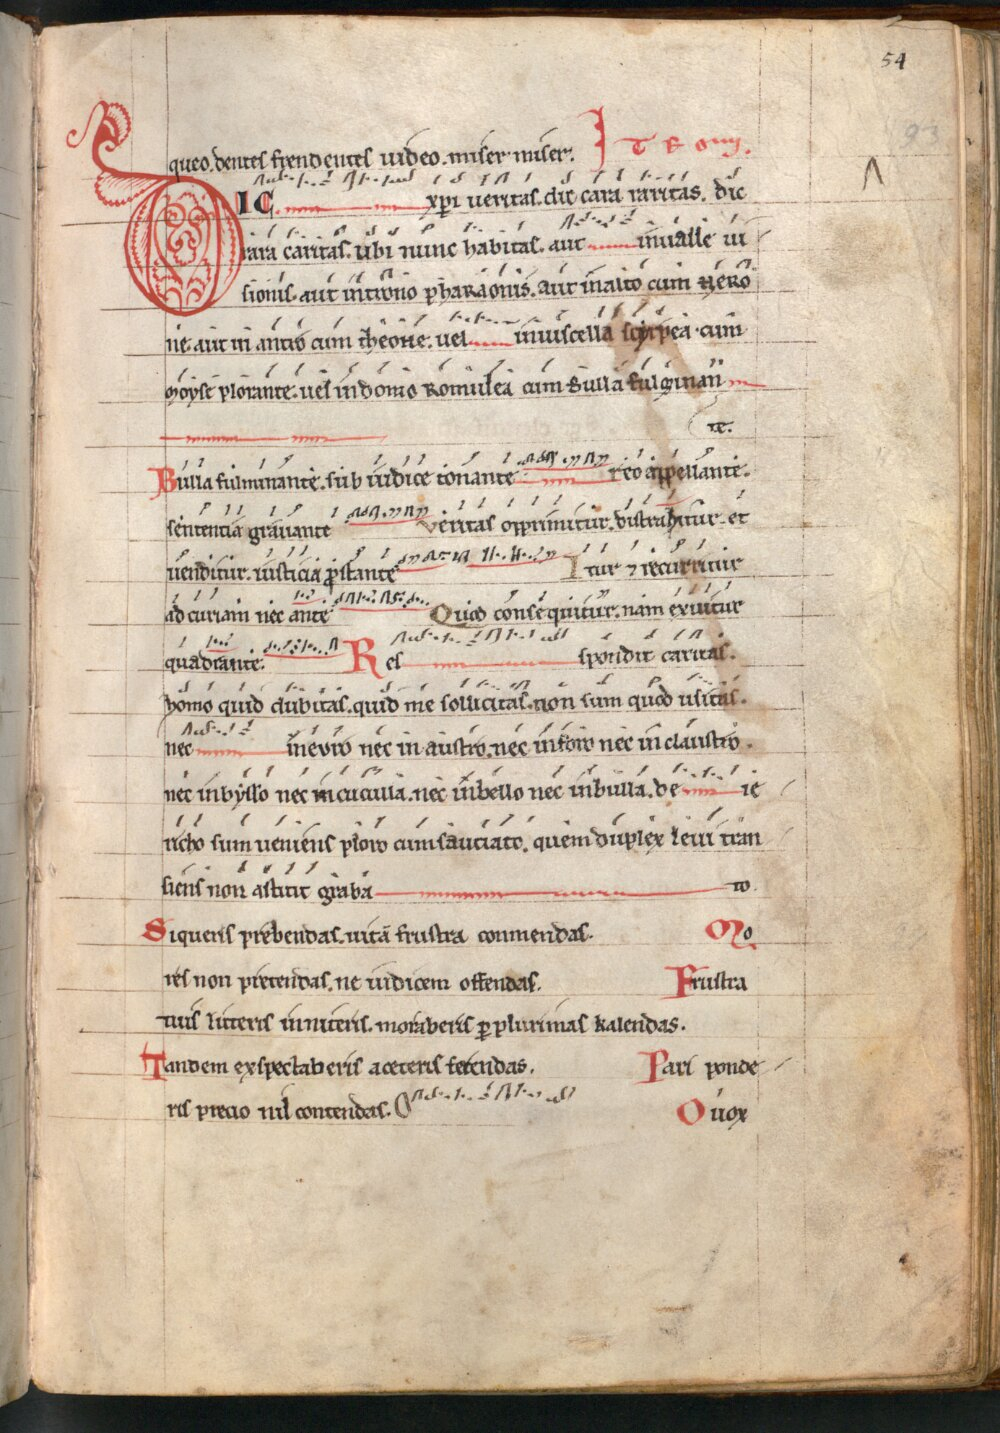 54
93
queo. dentes frendentes uideo. miser miser. ITEM.
DIC xpi ueritas. dic cara raritas. dic
rara caritas. ubi nunc habitas. aut inualle ui
sionis. aut introno pharaonis. aut inalto cum nero
ne. aut in antro cum theone. uel inuiscella scyrpea cum
moyse plorante. uel indomo Romulea cum Bulla fulminan
te.
Bulla fulminante. sub iudice tonante reo appellante.
sententia grauante ueritas opprimitur. distrahitur. et
uenditur. iusticia pstante Itur 7 recurritur
ad curiam nec ante Quod consequitur. nam exuitur
quadrante. Res spondit caritas.
homo quid dubitas. quid me sollicitas. non sum quod usitas.
nec ineuro nec in austro. nec inforo nec in claustro.
nec inbysso nec incuculla. nec inbello nec inbulla. de ie
richo sum ueniens ploro cum sauciato. quem duplex leui tran
siens non astitit graba to.
Siqueris prebendas. uitā frustra conmendas. Mo
res non pretendas. ne iudicem offendas. Frustra
tuis litteris inniteris. moraberis p plurimas kalendas.
Tandem exspectaberis aceteris ferendas. Pari ponde
ris precio nil contendas. O uox